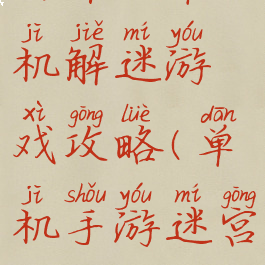 jī jiě mí yóu
机解迷游
xì gōng lüè dān
戏攻略(单
jī shǒu yóu mí gōng
机手游迷宫